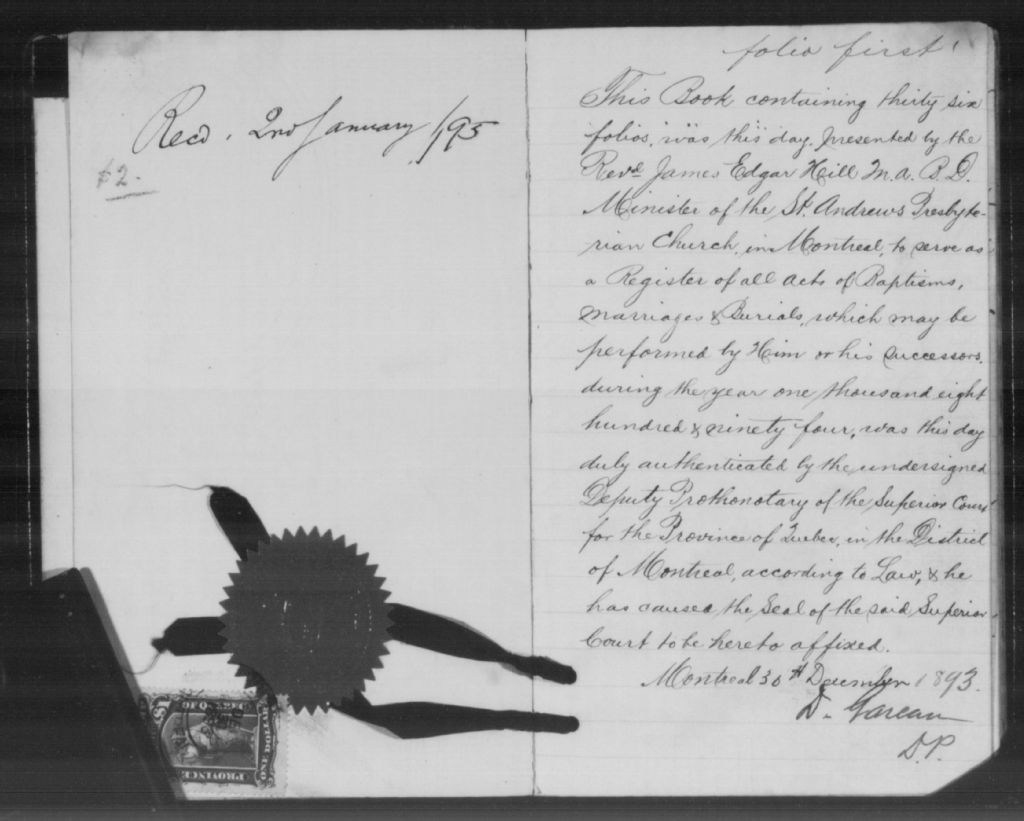 Recd. 2nd January /95
$2.
ONE DOLLAR
PROVINCE
folio first
This Book containing thirty six
folios, was this day, presented by the
Revd. James Edgar Hill M.A. B.D.
Minister of the St. Andrews Presbyte-
rian Church, in Montreal, to serve as
a Register of all acts of Baptisms,
marriages & Burials, which may be
performed by Him or his successors,
during the year one thousand eight
hundred & ninety four, was this day
duly authenticated by the undersigned
Deputy Prothonotary of the Superior Court
for the Province of Quebec, in the District
of Montreal, according to Law, & he
has caused the Seal of the said Superior
Court to be hereto affixed.
Montreal 30th December 1893.
D.P.